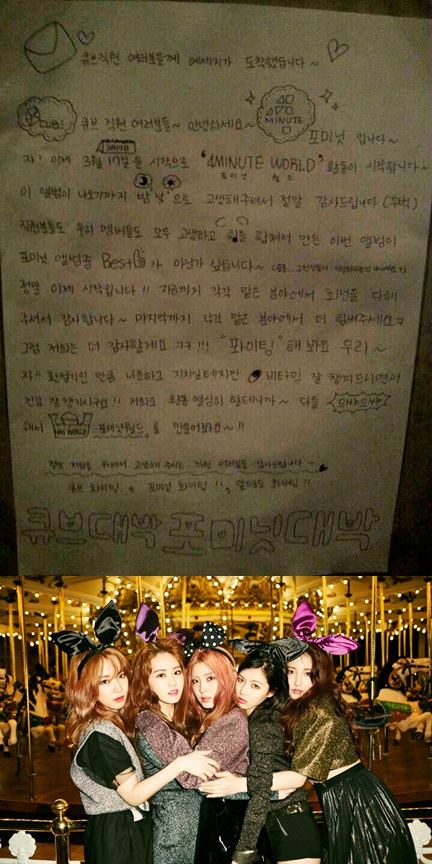 큐브직원 여러분들께 메세지가 도착했습니다~
CUBE 큐브 직원 여러분들~ 안녕하세요~ 4MINUTE 포미닛 입니다~
자! 이제 3월 17일을 시작으로 '4MINUTE WORLD' 활동이 시작됩니다~
포미닛 월드
이 앨범이 나오기까지 밤 낮으로 고생해주셔서 정말 감사드립니다 (꾸벅)
직원분들도 우리 멤버들도 모두 고생하고 힘을 합쳐서 만든 이번 앨범이
포미닛 앨범중 Best가 아닌가 싶습니다~
정말 이제 시작입니다!! 지금까지 각각 맡은 분야에서 최선을 다해
주셔서 감사합니다~ 마지막까지 각각 맡은 분야에서 더 힘써주세요ㅋ
그럼 저희는 더 감사할게요 ㅋㅋ!!! "화이팅" 해 봐요 우리~
자!! 환절기인 만큼 나른하고 지치실테지만 비타민 잘 챙겨드시면서
건강 잘 챙기시구요!! 저희도 활동 열심히 할테니까~ 다들 으샤으샤
해서 4MIN WORLD 포미닛월드로 만들어봐요~!!
정말 저희를 위해서 고생해 주시는 직원 여러분들 감사드립니다~
큐브 화이팅, 포미닛 화이팅!!, 앨범도 화이팅!!
큐브대박 포미닛대박